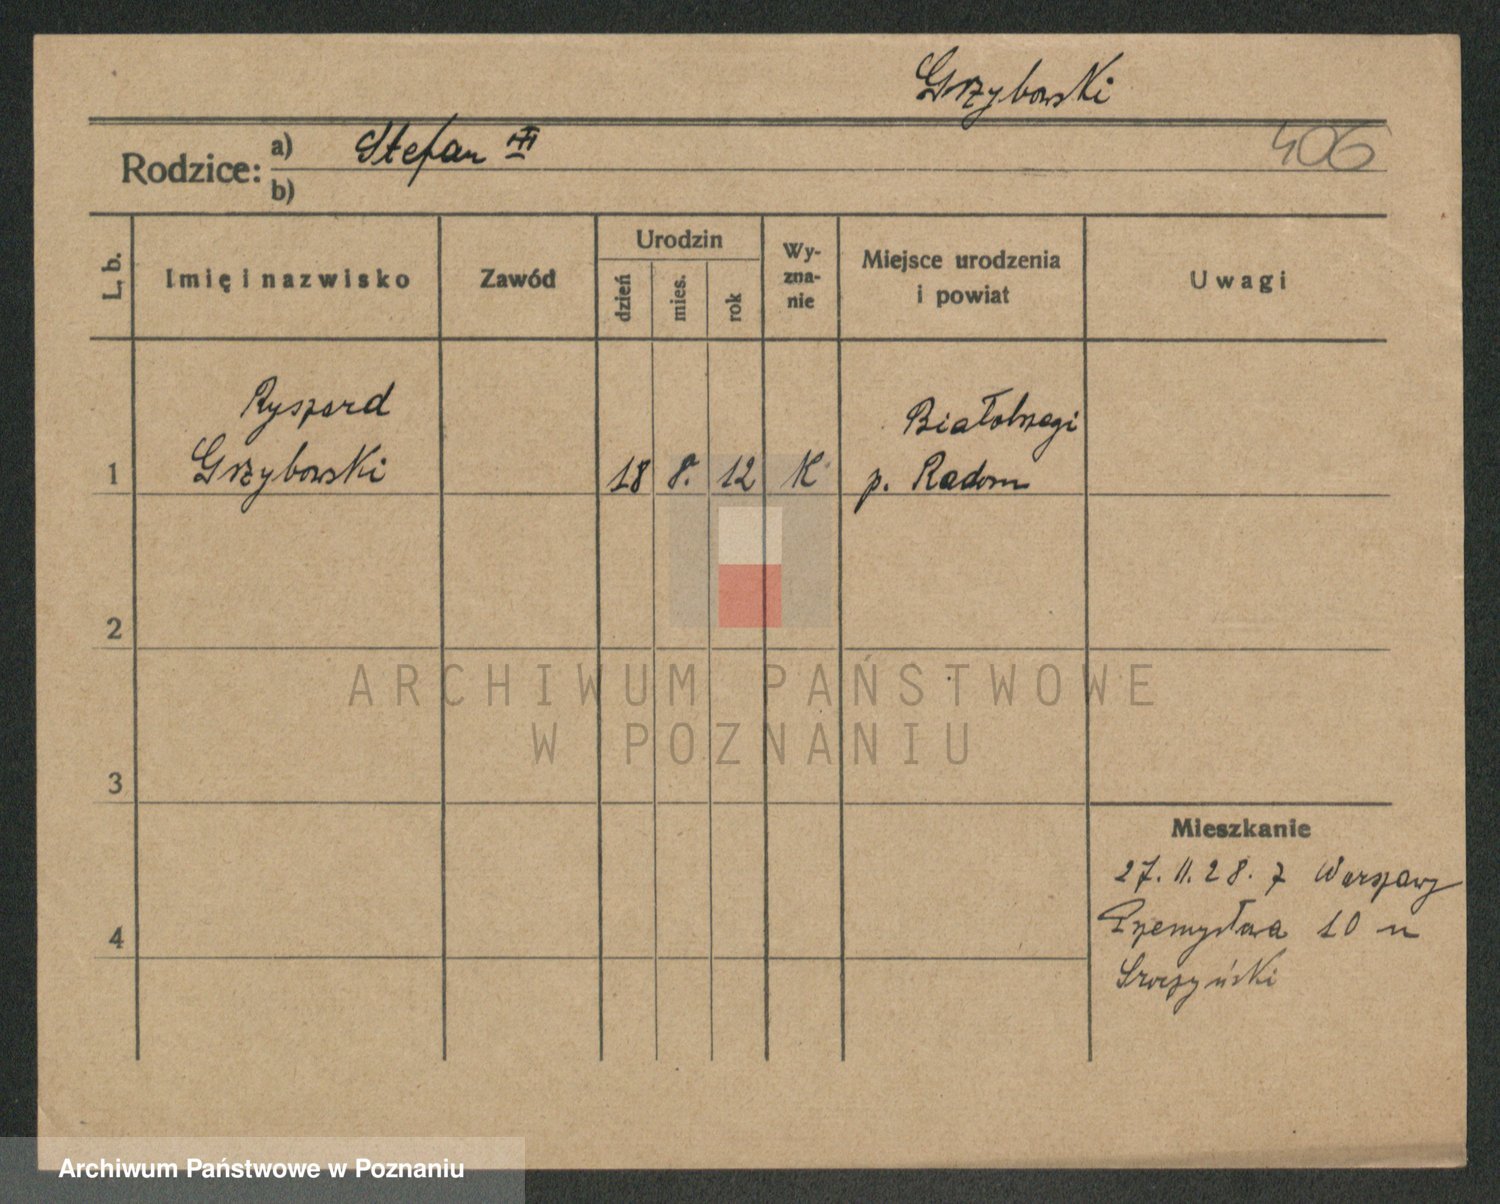 Grzybowski
406
Rodzice: a) Stefan III
b)
L. b.
Imię i nazwisko
Zawód
Urodzin
dzień
mies.
rok
Wy-
zna-
nie
Miejsce urodzenia
i powiat
Uwagi
Ryszard
Białobrzegi
1 Grzybowski 18 8. 12 K p. Radom
2
3
4
ARCHIWUM PAŃSTWOWE
W POZNANIU
Mieszkanie
27. II. 28. z Warszawy
Przemysława 10 u
Archiwum Państwowe w Poznaniu